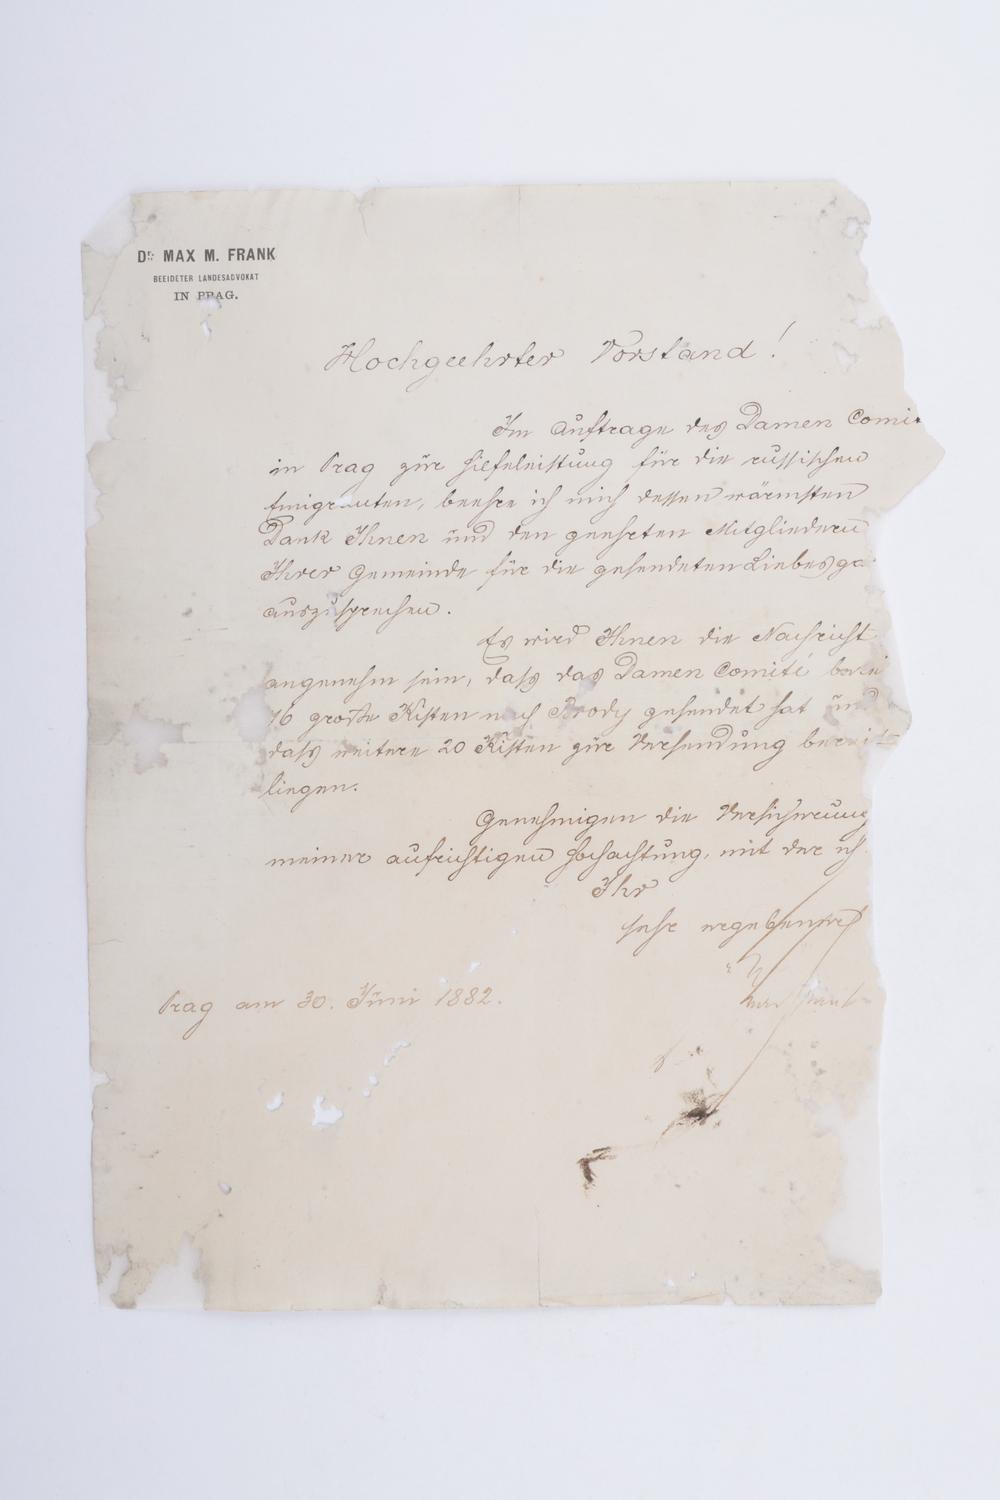 Dr. MAX M. FRANK
BEEIDETER LANDESADVOKAT
IN PRAG.
Hochgeehrter Vorstand!
Im Auftrage des Damen Comit
in Prag zur Hilfeleistung für die russischen
Emigranten, beehre ich mich dessen wärmsten
Dank Ihnen und den geehrten Mitgliedern
Ihrer Gemeinde für die gesendeten Liebesga
auszusprechen.
Es wird Ihnen die Nachricht
angenehm sein, daß das Damen Comité berei
16 große Kisten nach Brody gesendet hat und
daß weitere 20 Kisten zur Versendung bereit
liegen.
Genehmigen die Versicherung
meiner aufrichtigen Hochachtung, mit der ich
Ihr
sehr ergebenster
Prag am 30. Juni 1882.